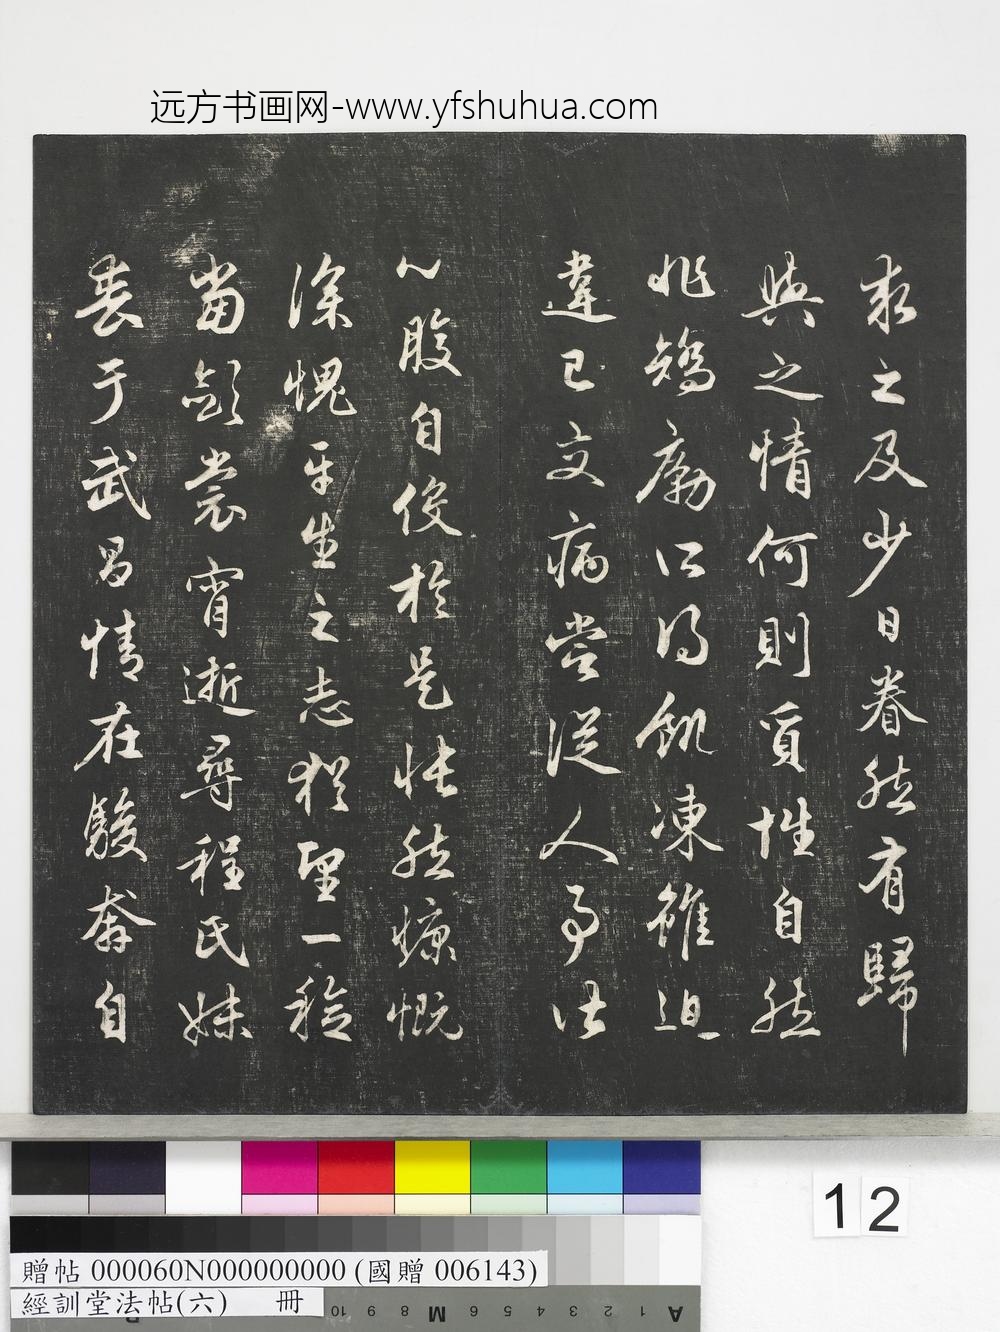 远方书画网-www.yfshuhua.com
求之及少日眷然有歸
與之情何則質性自然
非矯勵所得飢凍雖迫
違己交病嘗從人事皆
口腹自役於是悵然慷慨
深愧平生之志猶望一稔
當斂裳宵逝尋程氏妹
喪于武昌情在駿奔自
12
贈帖 000060N000000000 (國贈 006143)
經訓堂法帖(六) 冊
10 9 8 M 6 5 4 3 2 1 A